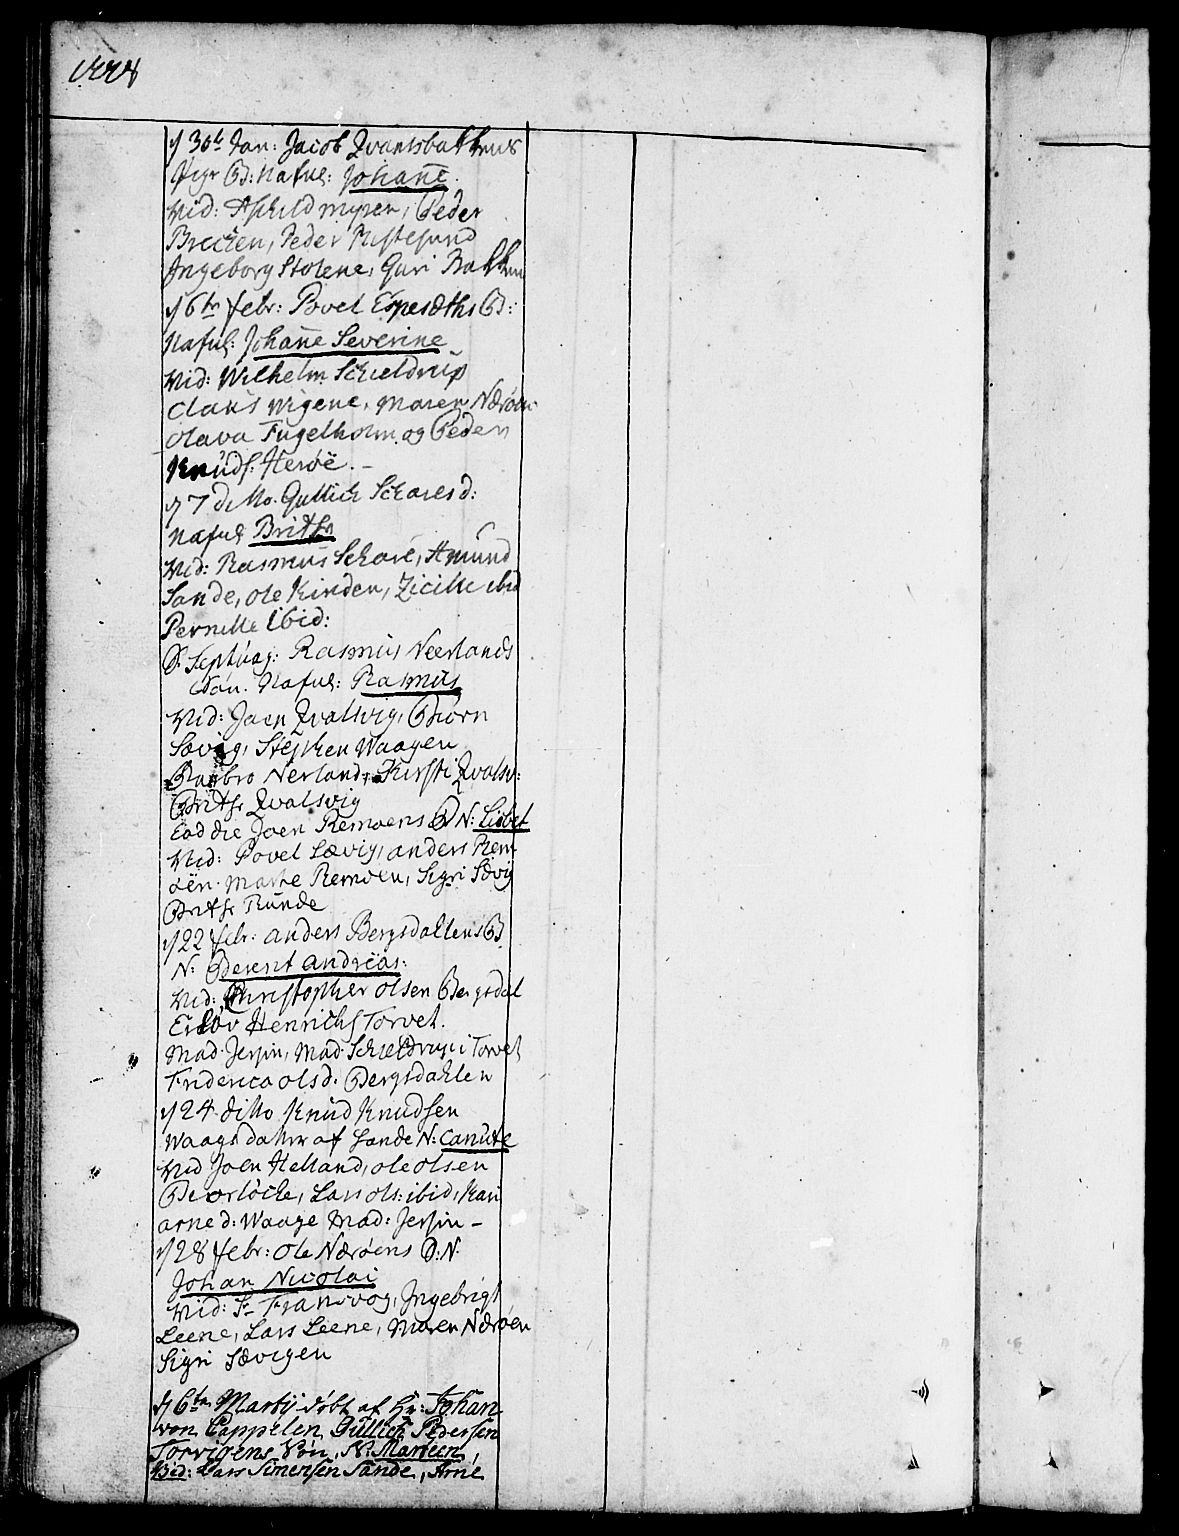 d 30te Jan: Jacob Qvantsbakkens
Pigr B: Nafnl: Johane
Vid: Askild myren, Peder
Breiten, Peder Ristesund
Ingeborg Stolene, Guri Bakken
d 6te febr: Povel Espesæths B:
Nafnl: Johane Severine
Vid: Wilhelm Schieldrup
Claus Wigene, Maren Nærøen
Olava Fugelholm og Peder
Knuds: Herøe. –
d 7 ditto Gullich Schares d:
Nafnl Brithe
Vid: Rasmus Schare, Amund
Sande, Ole Kinden, Zicille ibid
Pernille ibid:
D. Septuag: Rasmus Neerlands
Søn. Nafnl: Rasmus
Vid: Joen Qvalsvig, Biørn
Sævig, Stephen Waagen
Ranbro Nerland, Kirsti Qvalsv:
Brithe Qvalsvig
Eod die Joen Remøens B N: Lisbet
Vid: Povel Sævig, anders Rem
øen. Marte Remøen, Sigri Sævig
Brithe Runde
d 22 febr: anders Bergsdahlens B
N: Berent andreas:
Vid: Christopher olsen Bergsdal
Eiløv Henrichs Torvet.
Mad. Jersin, Mad. Schieldrup i Torvet
Friderica olsd. Bergsdahlen
d 24 ditto Knud Knudsen
Waagsdahm af Sande N: Canute
Vid Joen Helland, ole olsen
Deorløche, Lars ols: ibid, Kari
arne d: Waage Mad: Jersin –
d 28 febr: Ole Nærøens D: N:
Johan Nicolai
Vid: Sr Fransvog, Ingebrigt
Leene, Lars Leene, Maren Nærøen
Sigri Sævigen
d 6te Martij døbt af Hr: Johan
von Cappelen Gullich Pedersen
Torvigens Søn, N: Marteen,
Vid: Lars Simensen Sande, Arne